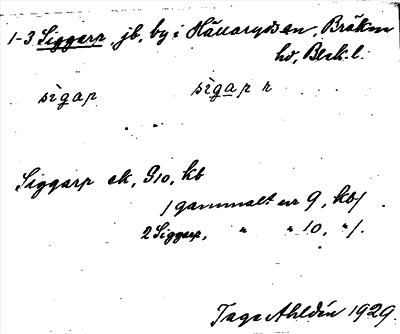 1-3 Siggarp jb. by i Hällaryds sn, Bräkne
hd, Blek. l.
sìgap sìgap r
Siggarp ek, 9 10, kb
1 gammalt nr 9, kb/.
2 Siggarp, " " 10, "/.
Tage Ahldén 1929.